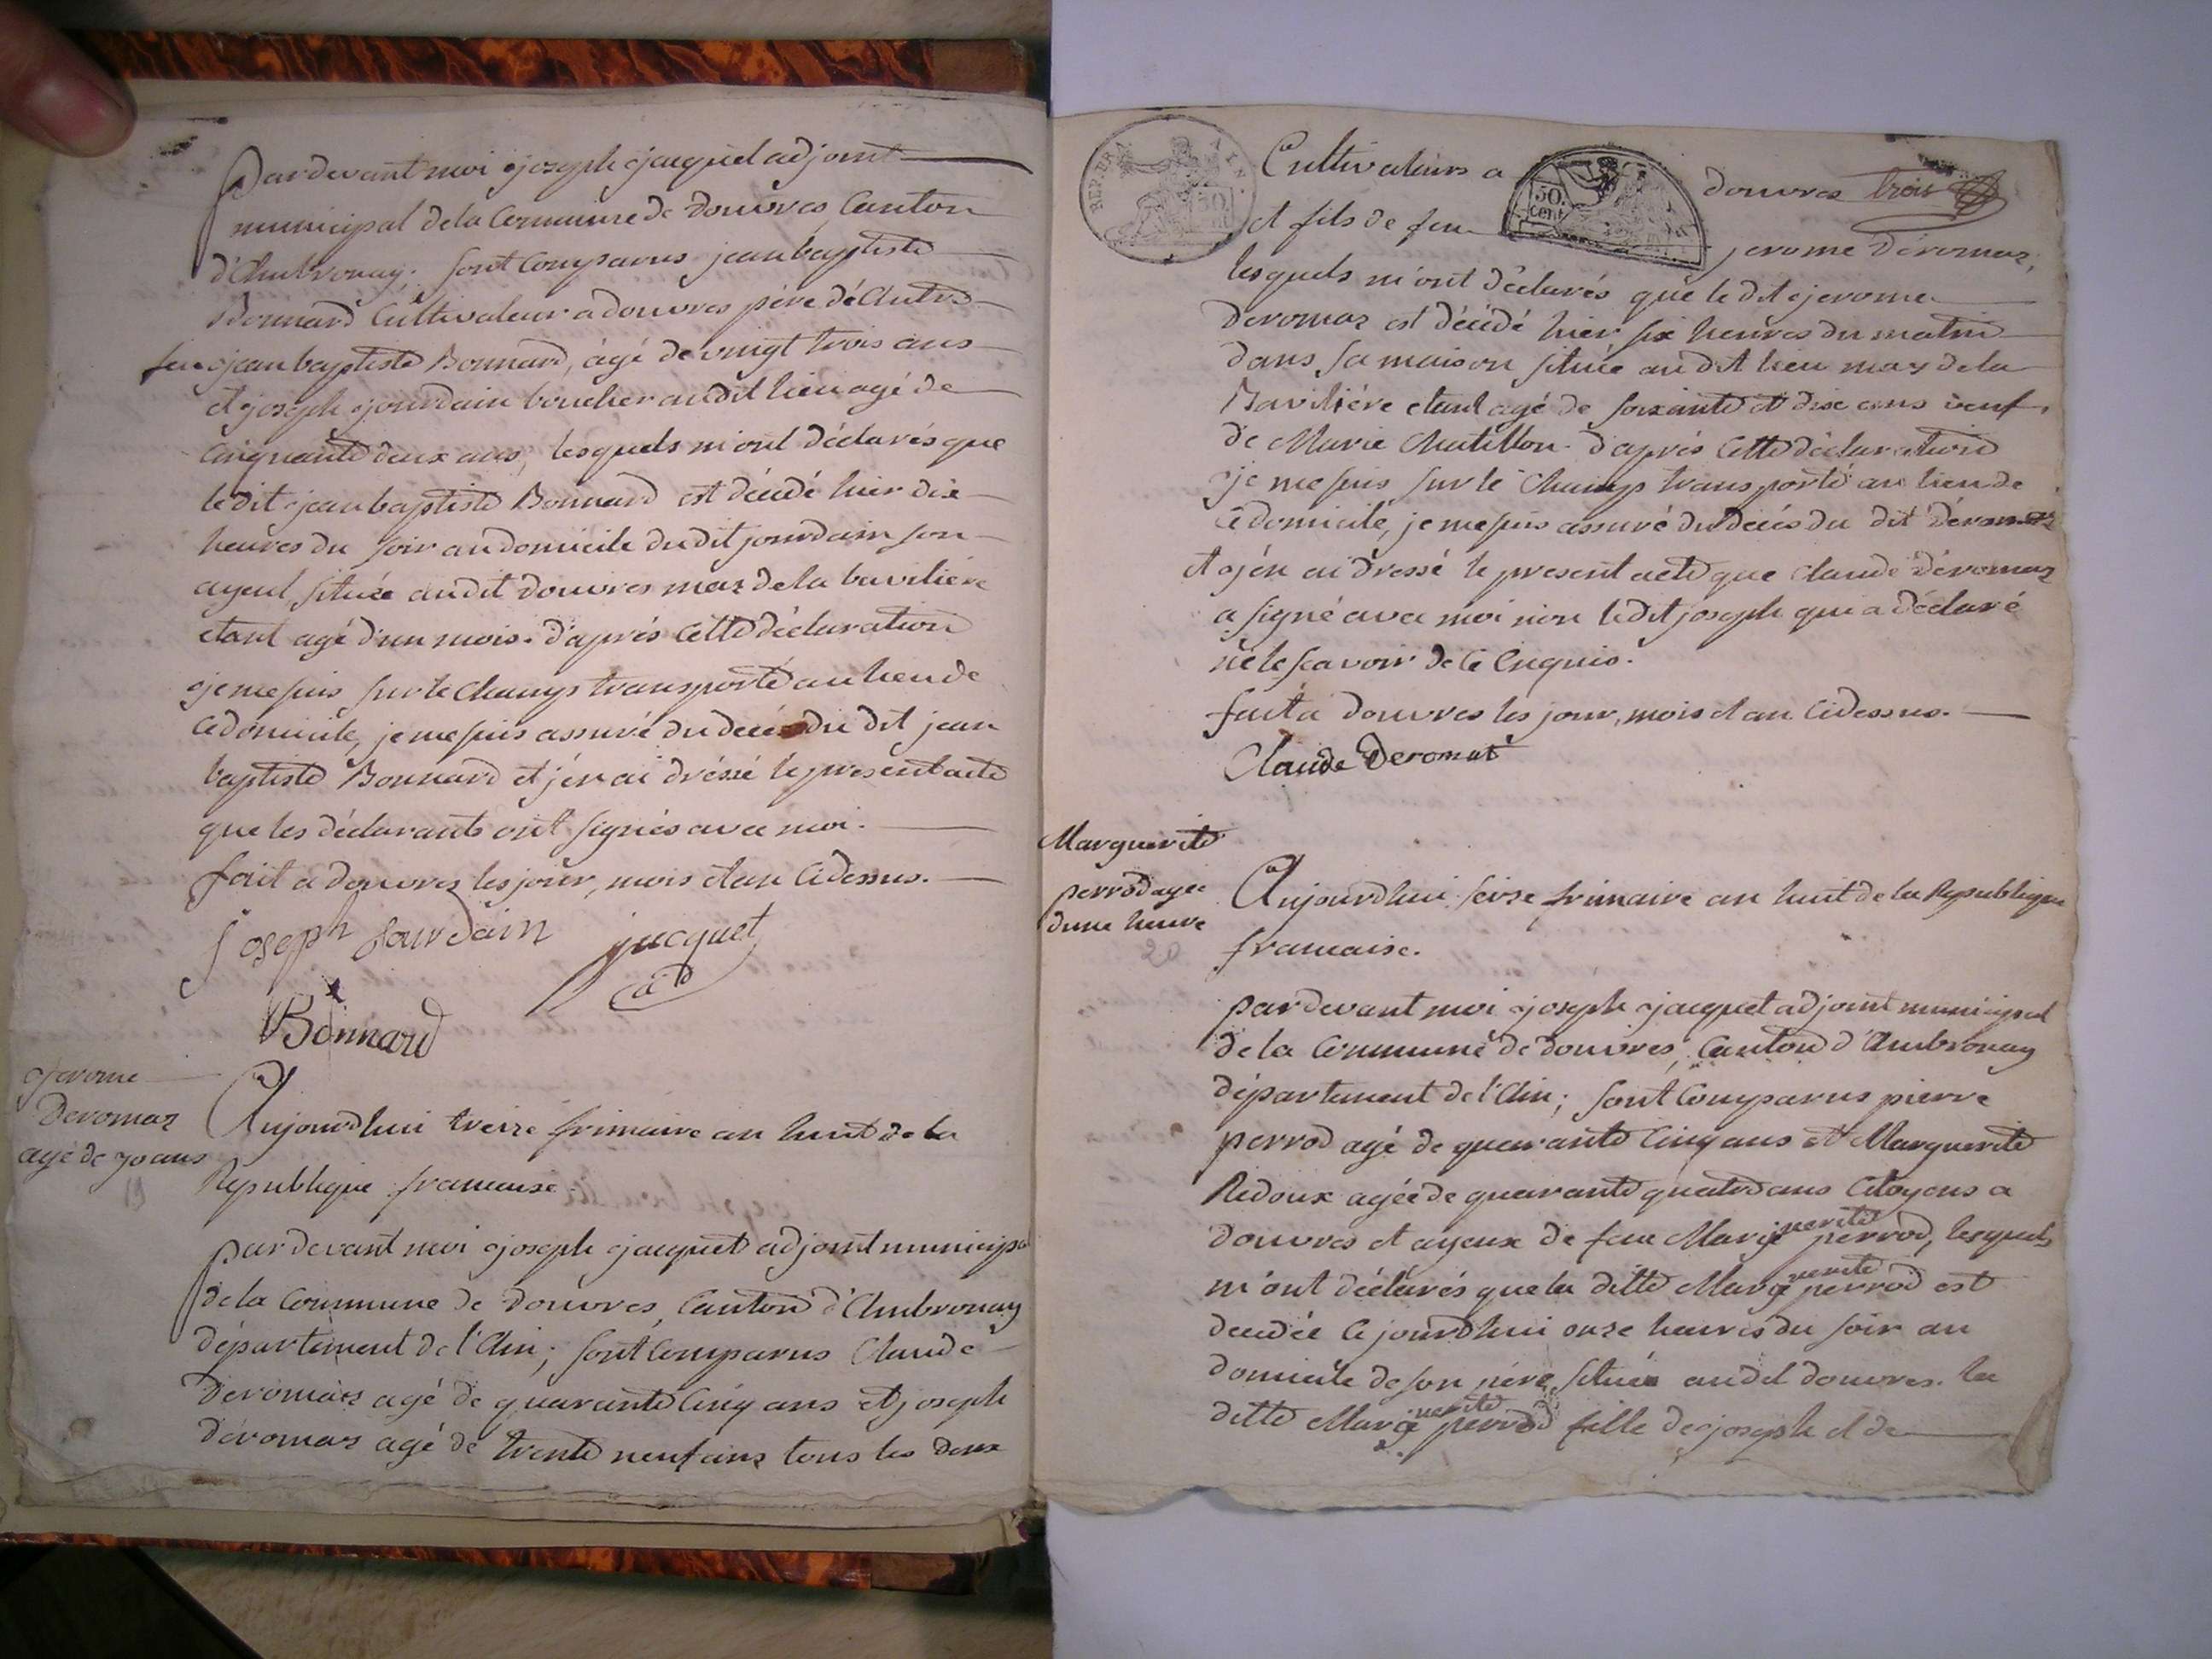 Pardevant moi joseph jacquet adjoint
municipal de la Commune de Douvres Canton
d'Ambronay; sont Comparus jean baptiste
Bonnard Cultivateur a douvres père de Autre
feu jean baptiste Bonnard, âgé de vingt trois ans
et joseph jourdain boucher audit lieu agé de
Cinquante deux ans, lesquels m'ont déclarés que
ledit jean baptiste Bonnard est décédé hier dix
heures du soir au domicile dudit jourdain son
ayeul, située audit Douvres maz de la baviliére
etant agé d'un mois. d'aprés Cette déclaration
je me suis sur le Champs transporté au lieu de
Ce domicile, je me suis assuré du decés du dit jean
baptiste Bonnard et j'en ai dréssé le present acte
que les déclarants ont signés avec moi.
fait a douvres les jour, mois et an Cidessus.
Joseph Jourdain jacquet
ad
Bonnard
Jerome
Deromaz
agé de 70 ans
19
Aujourdhui treize frimaire an huit de la
Republique francaise.
pardevant moi joseph jacquet adjoint municipal
de la Commune de Douvres, Canton d'Ambronay
département de l'Ain; sont Comparus Claude
Deromaz agé de quarante Cinq ans et joseph
déromaz agé de trente neuf ans tous les deux
Cultivateurs a douvres trois
REP. FRA
50.
cent
et fils de feu jerome Déromaz,
lesquels m'ont déclarés que le dit jerome
Deromaz est décédé hier, six heures du matin
dans sa maison située audit lieu maz de la
Baviliére etant agé de soixante et dix ans veuf
de Marie Chatillon. d'aprés Cette déclaration
je me suis sur le Champs transporté au lieu de
Ce domicile, je me suis assuré du decés du dit Déromaz
et j'en ai dressé le present acte que Claude Déromaz
a signé avec moi non ledit joseph qui a déclaré
ne le scavoir de Ce Enquis.
fait a Douvres les jour, mois et an Cidessus.
Claude Deromat
Marguerite
perrod agée
dune heure
20
Aujourdhui seize frimaire an huit de la Republique
francaise.
pardevant moi joseph jacquet adjoint municipal
de la Commune de douvres, Canton d'Ambronay
département de l'Ain; sont Comparus pierre
perrod agé de quarante Cinq ans et Marguerite
Ridoux agée de quarante quatre ans Citoyens a
Douvres et ayeux de feue Marguerite perrod, lesquels
m'ont déclarés que la ditte Marguerite perrod est
decedée Cejourdhui onze heures du soir au
domicile de son père située audit douvres. la
ditte Marguerite perrod fille de joseph et de